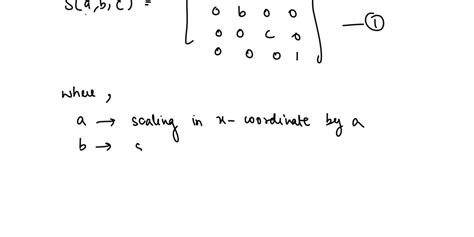 S(a,b,c) =
0 b 0 0
0 0 c 0 — ①
0 0 0 1
where,
a → scaling in x-coordinate by a
b → s